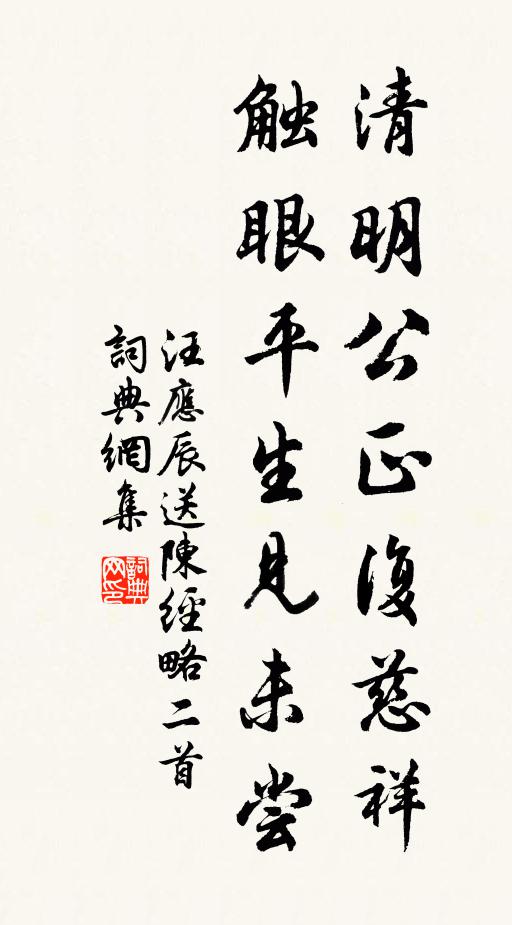 清明公正復慈祥
触眼平生見未尝
汪應辰送陳經略二首
詞典網集
詞典
网印